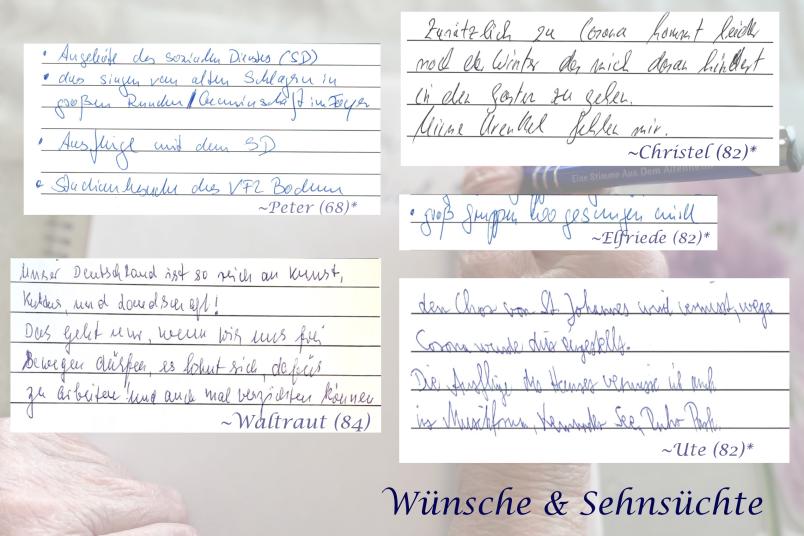 • Angebote des sozialen Dienstes (SD)
• das singen von alten Schlagern in
großen Runden/Gemeinschaft im Foyer
• Ausflüge mit dem SD
• Stadionbesuche des VFL Bochum
~Peter (68)*
Zusätzlich zu Corona kommt leider
noch der Winter der mich daran hindert
in den Garten zu gehen.
Meine Urenkel fehlen mir.
~Christel (82)*
Eine Stimme Aus Dem Altenheim
• groß gruppen wo gesungen wird
~Elfriede (82)*
Unser Deutschland ist so reich an Kunst,
Kultur, und Landschaft!
Das geht nur, wenn wir uns frei
Bewegen dürfen, es lohnt sich, dafür
zu arbeiten und auch mal verzichten können
~Waltraut (84)
den Chor von St. Johannes wird vermisst, wegen
Corona wurde dies eingestellt.
Die Ausflüge des Hauses vermisse ich auch
ins Musikforum, Kemnader See, Ruhr Park.
~Ute (82)*
Wünsche & Sehnsüchte